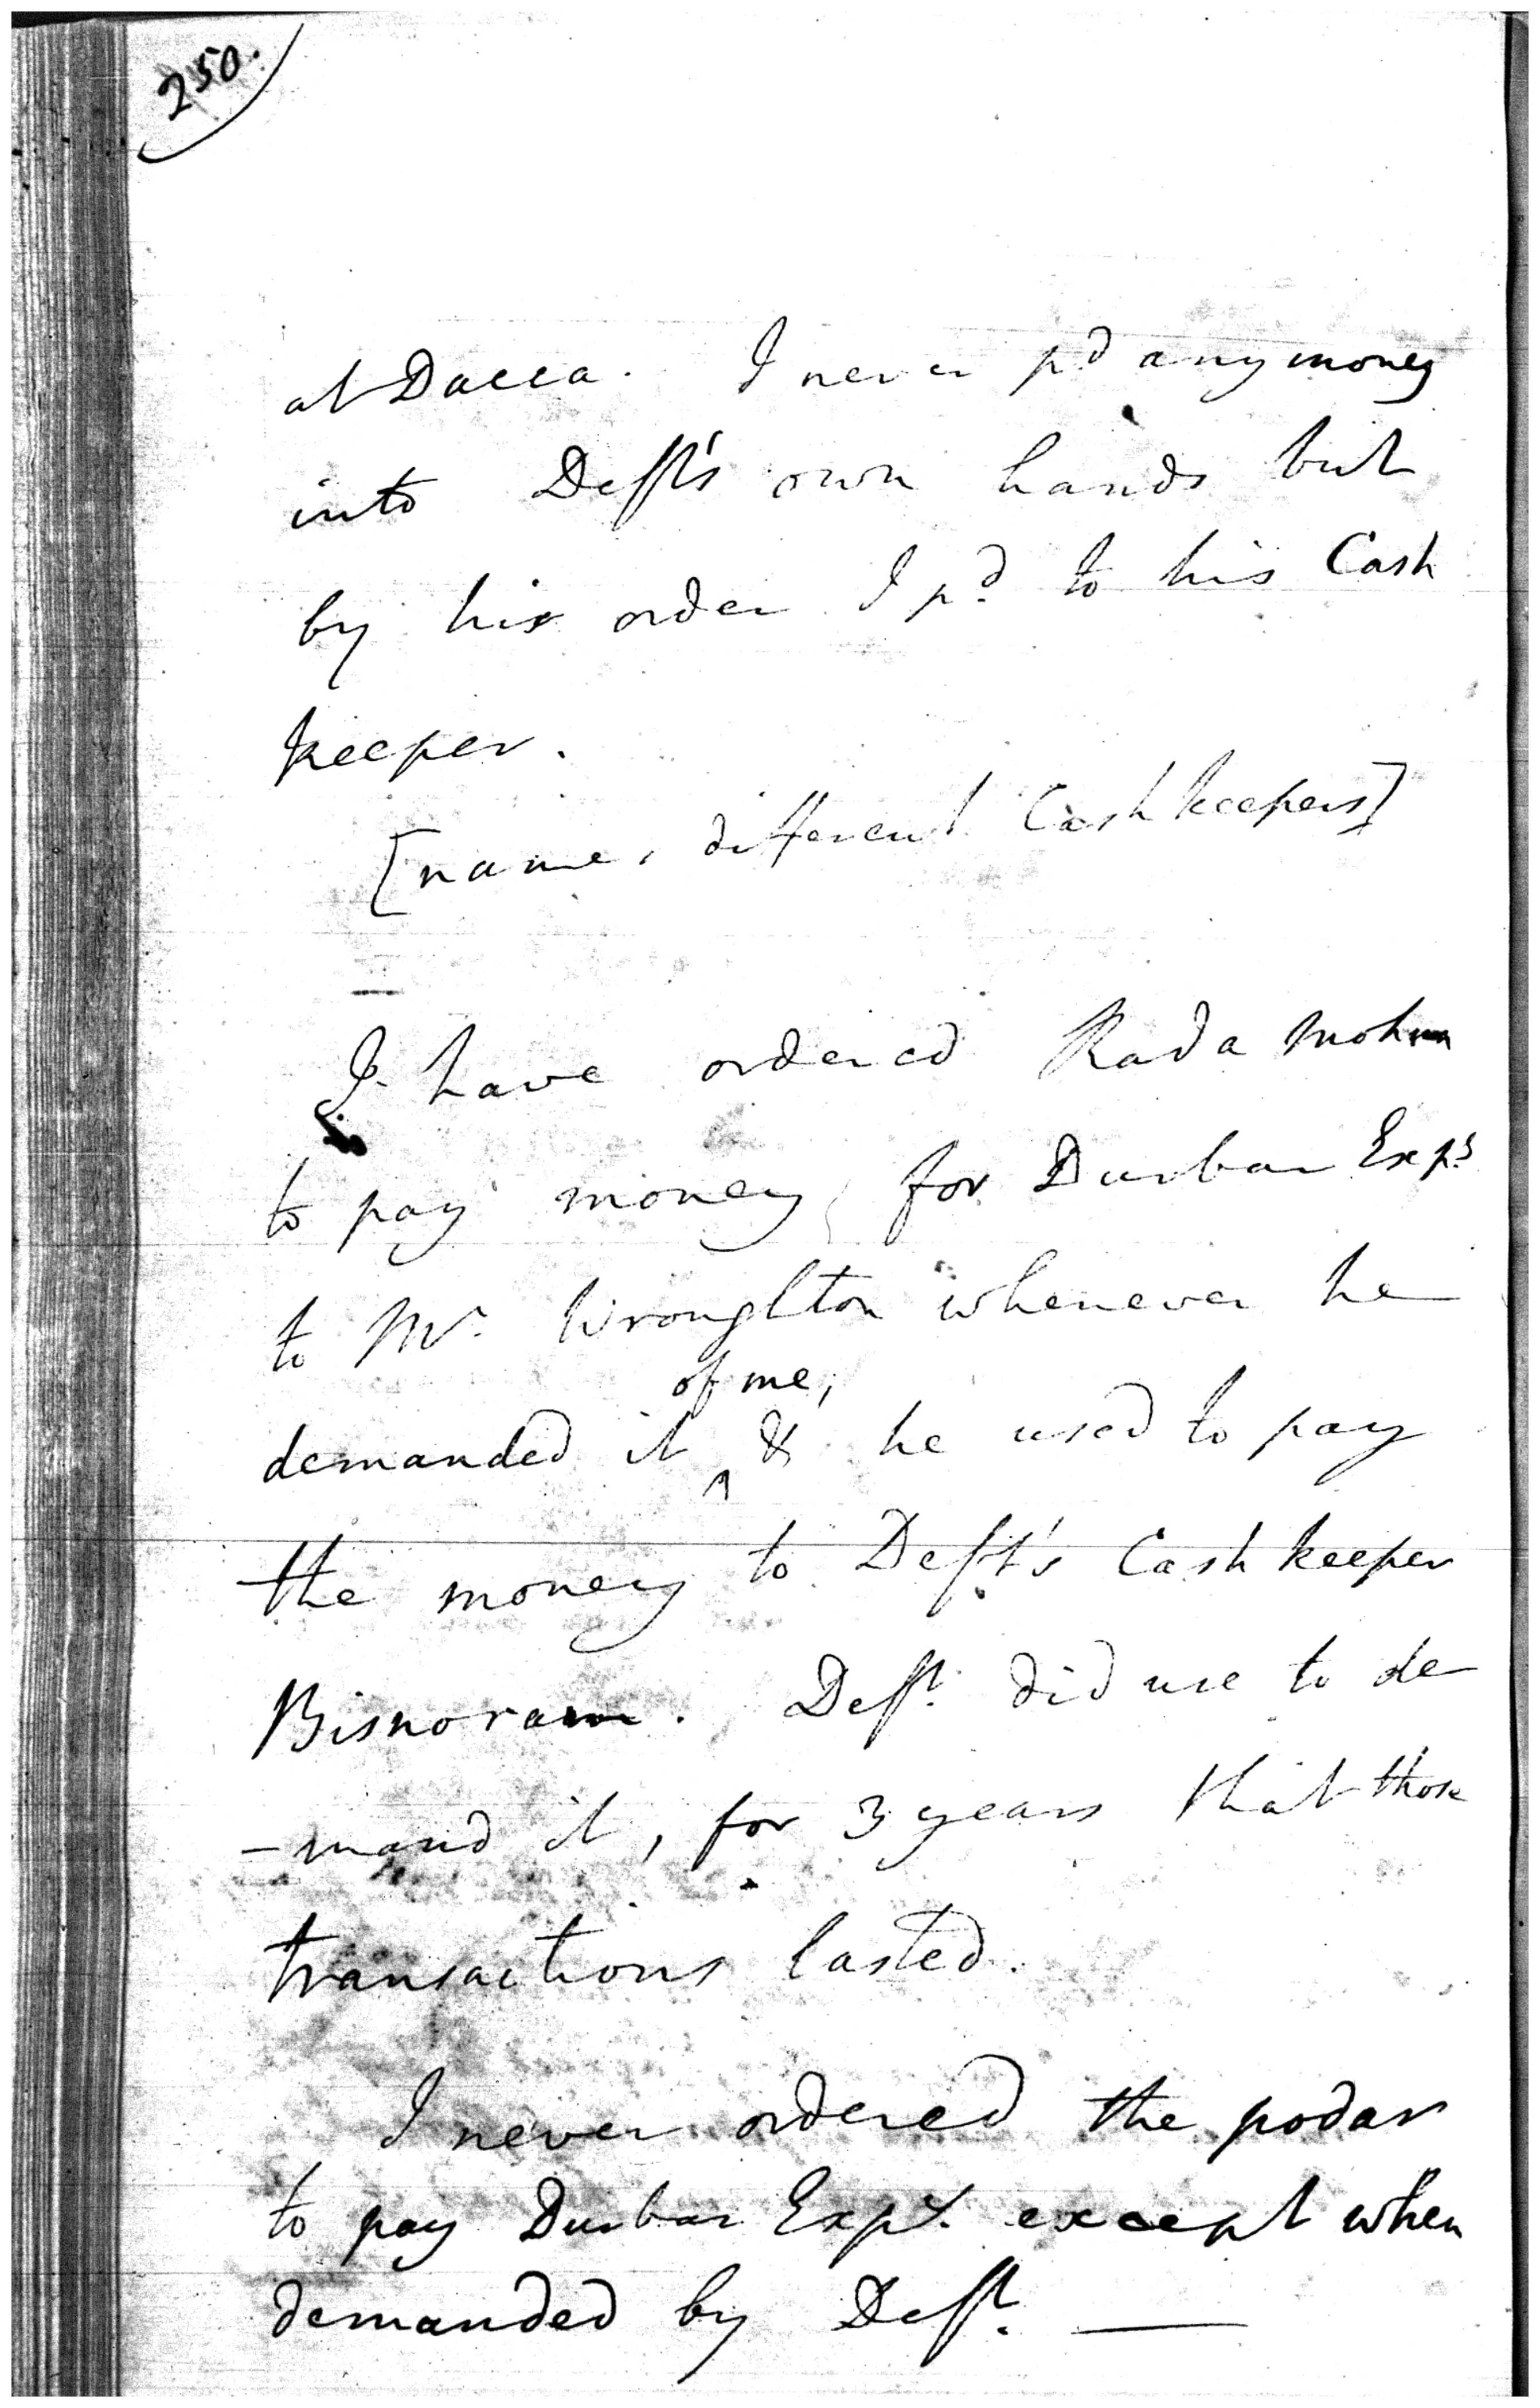 250.
at Dacca. I never pd any money
into Deft's own hands but
by his order I pd to his Cash
keeper.
[name, different Cash keepers]
I have ordered Rada Mohun
to pay money for Durbar Exps
to Mr. Wroughton whenever he
of me,
demanded it ^ & he used to pay
the money to Deft's Cash keeper
Bisnoram. Deft. did use to de
-mand it, for 3 years that those
transactions lasted.
I never ordered the podar
to pay Durbar Exps. except when
demanded by Deft. —